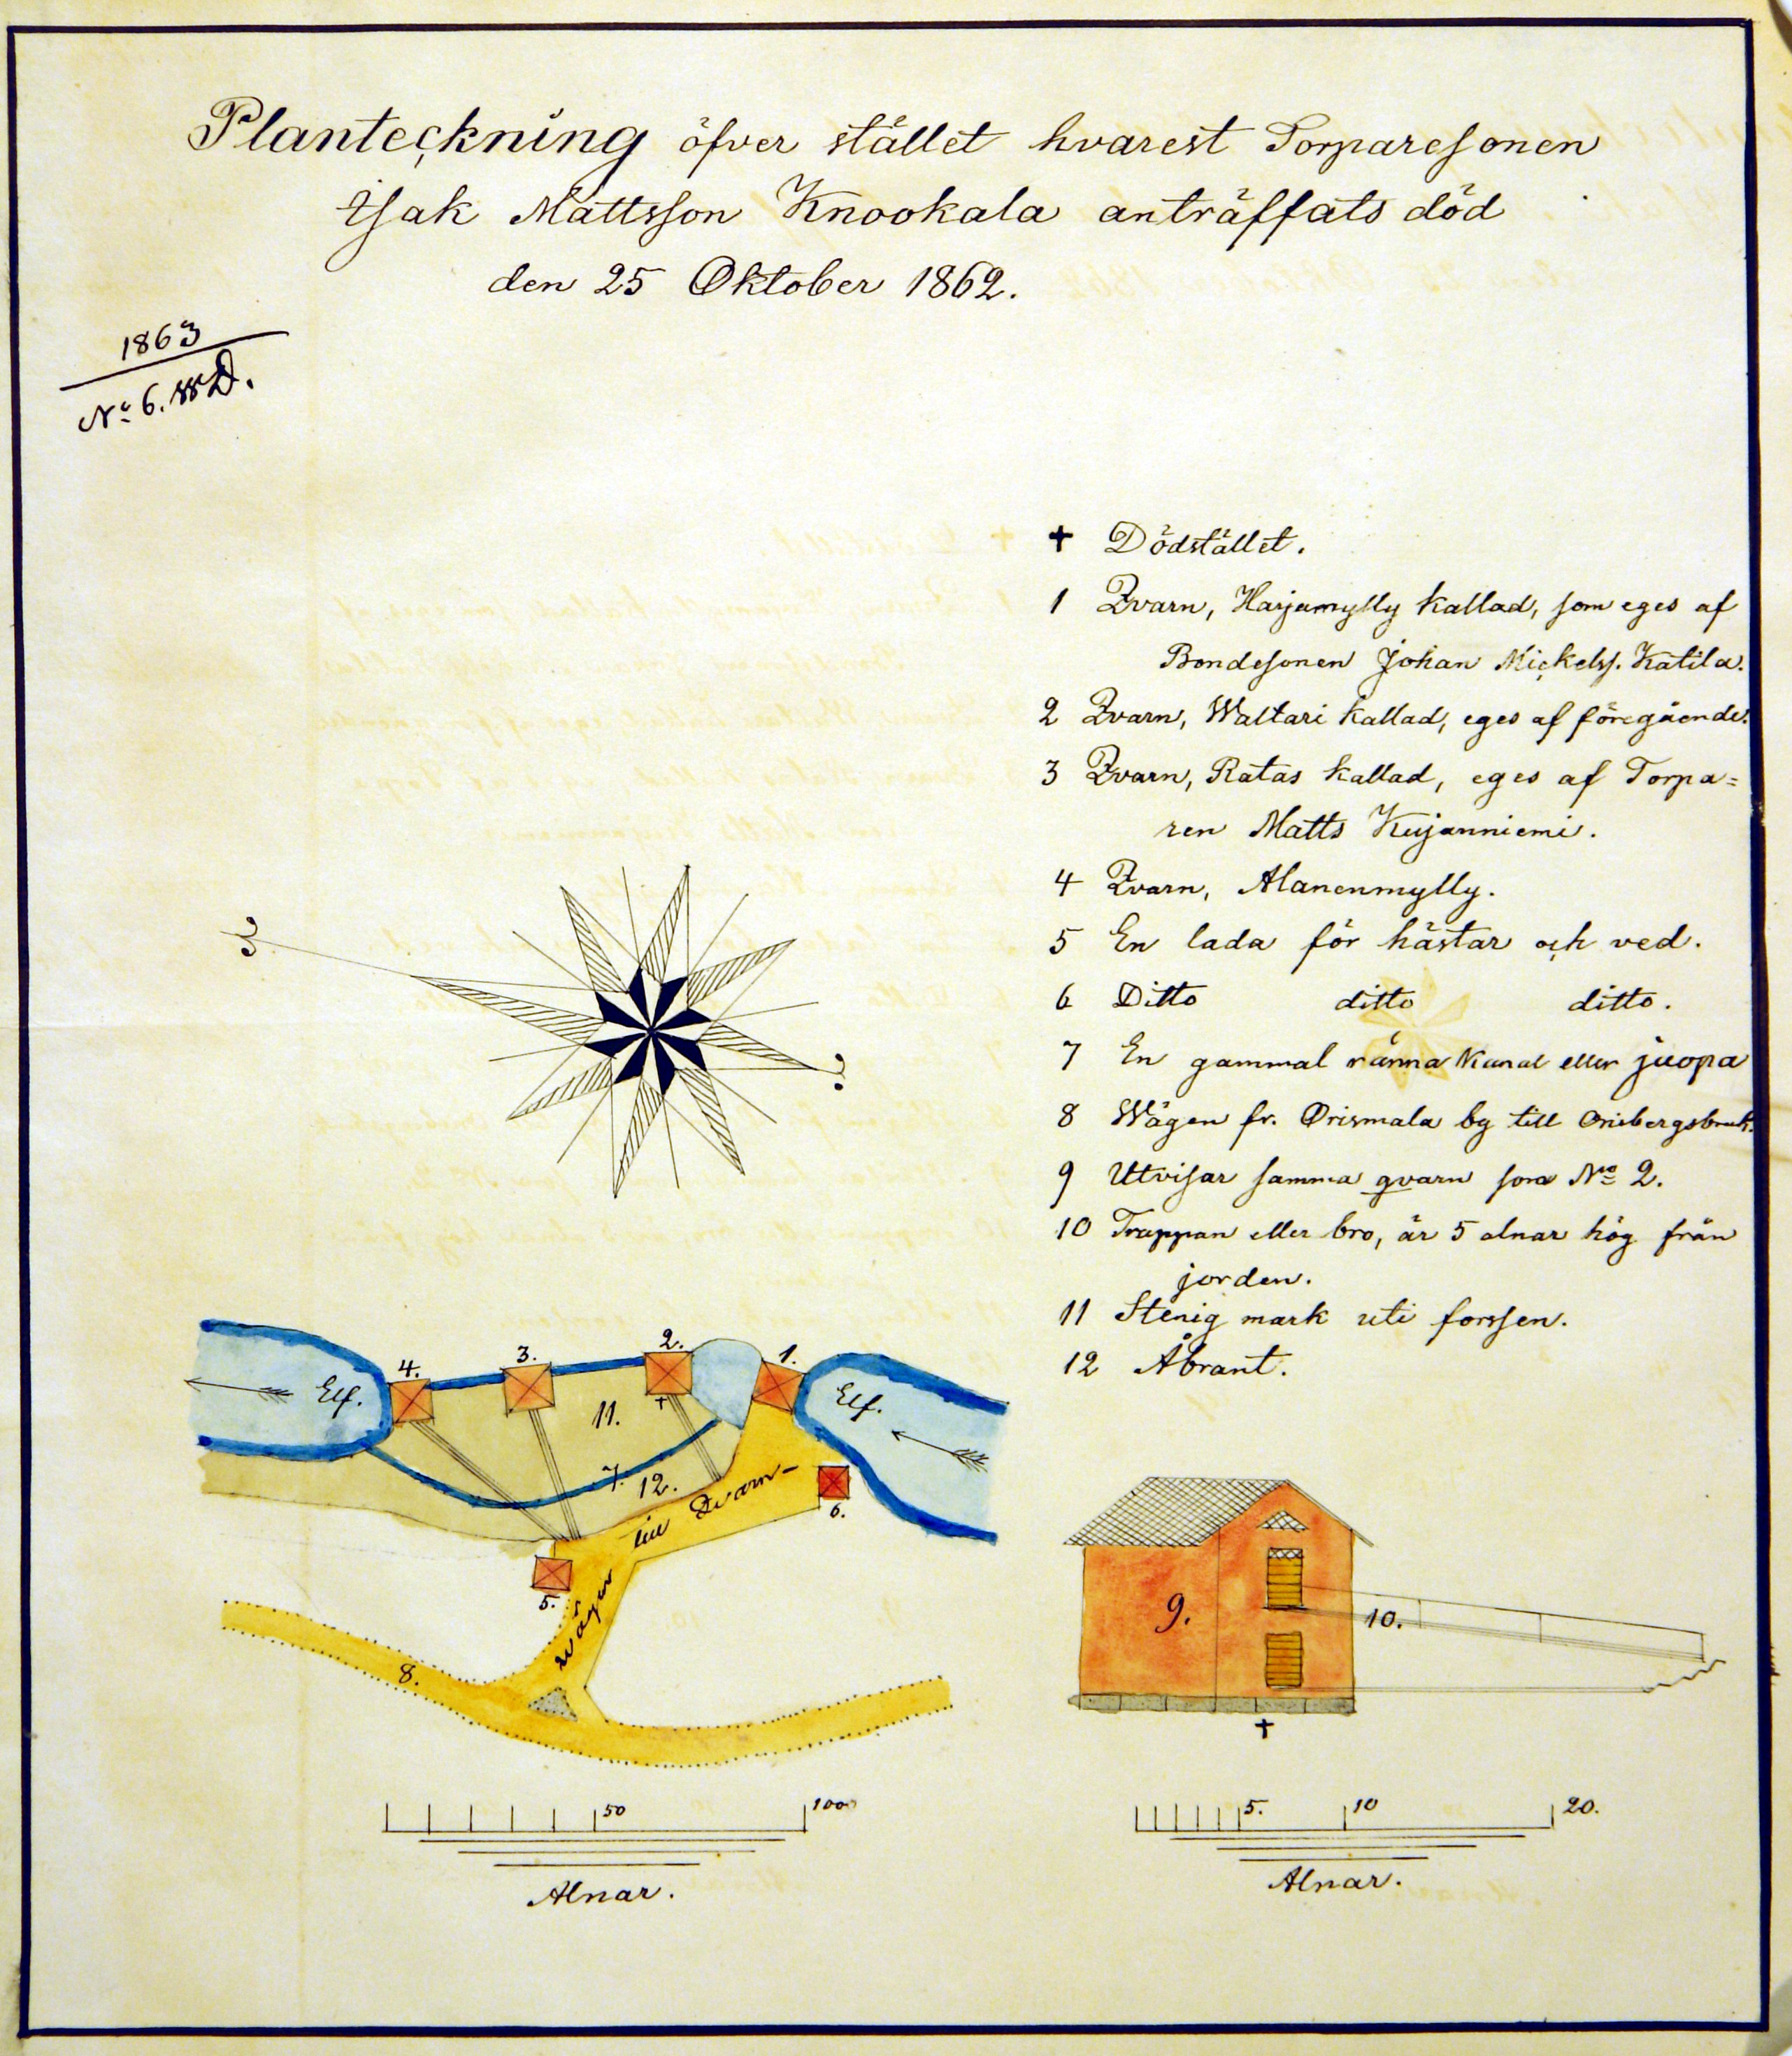 Planteckning öfver stället hvarest Torparesonen
Isak Mattsson Knookala anträffats död
den 25 Oktober 1862.
1863
No 6.
✝ Dödstället.
1 Qvarn, Harjamylly kallad, som eges af
Bondesonen Johan Mickelss. Katila.
2 Qvarn, Waltari kallad, eges af föregående.
3 Qvarn, Ratas kallad, eges af Torpa=
ren Matts Kujanniemi.
4 Qvarn, Alanenmylly.
5 En lada för hästar och ved.
6 Ditto ditto ditto.
7 En gammal ränna Kanal eller juopa
8 Wägen fr. Orismala by till Orisbergsbruk.
9 Utvisar samma qvarn som No 2.
10 Trappan eller bro, är 5 alnar hög från
jorden.
11 Stenig mark uti forssen.
12 Åbrant.
4. 3. 2. 1.
Elf. 11. Elf.
7. 12.
till Qvarn-
6.
5.
wägen
8.
9. 10.
50 100
Alnar.
5. 10 20.
Alnar.